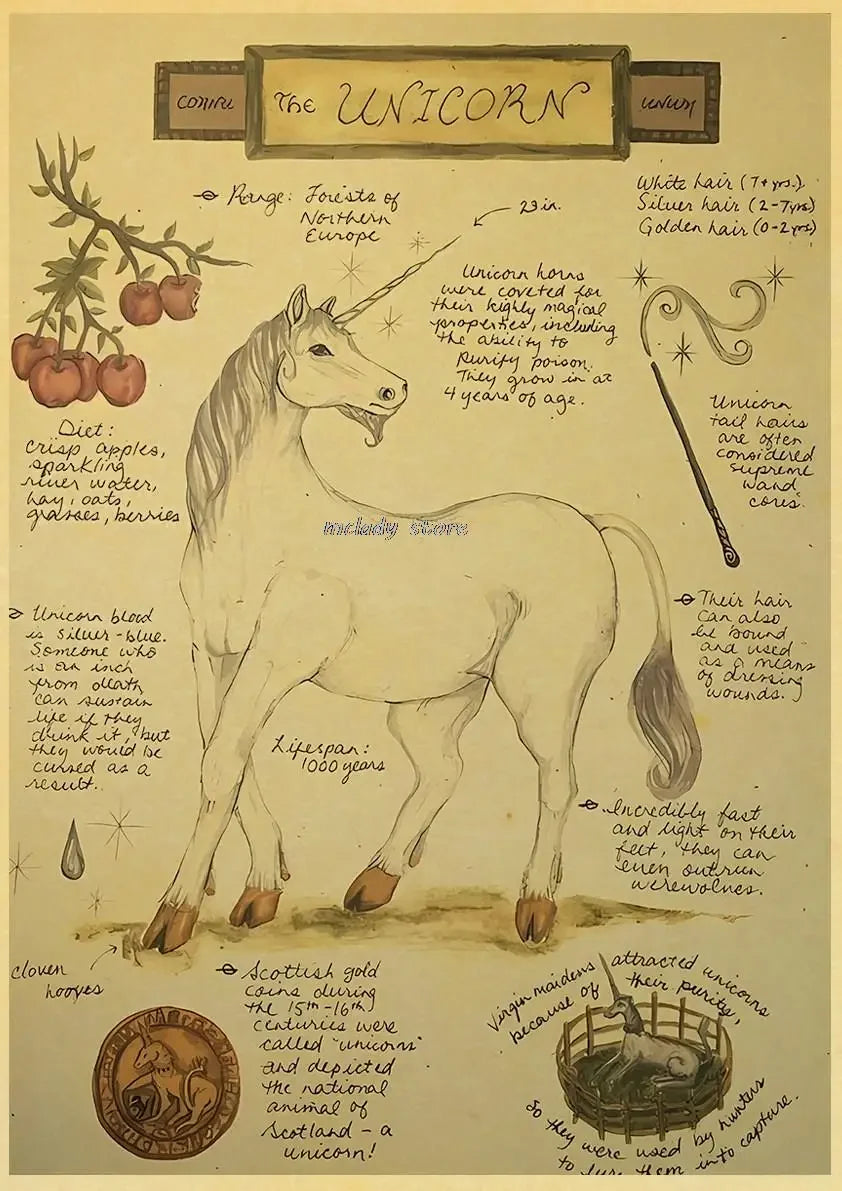 The UNICORN
Range: Forests of
Northern
Europe
23 in.
White hair (7+ yrs.)
Silver hair (2-7 yrs)
Golden hair (0-2 yrs)
Unicorn horns
were coveted for
their highly magical
properties, including
the ability to
purify poison.
They grow in at
4 years of age.
Unicorn
tail hairs
are often
considered
supreme
wand
cores.
Diet:
crisp apples,
sparkling
river water,
hay, oats,
grasses, berries
mclady store
Unicorn blood
is silver-blue.
Someone who
is an inch
from death
can sustain
life if they
drink it, but
they would be
cursed as a
result.
Their hair
can also
be bound
and used
as a means
of dressing
wounds.
Lifespan:
1000 years
Incredibly fast
and light on their
feet, they can
even outrun
werewolves.
cloven
hooves
Scottish gold
coins during
the 15th-16th
centuries were
called "unicorns"
and depicted
the national
animal of
Scotland - a
unicorn!
Virgin maidens attracted unicorns
because of their purity,
so they were used by hunters
to lure them into capture.